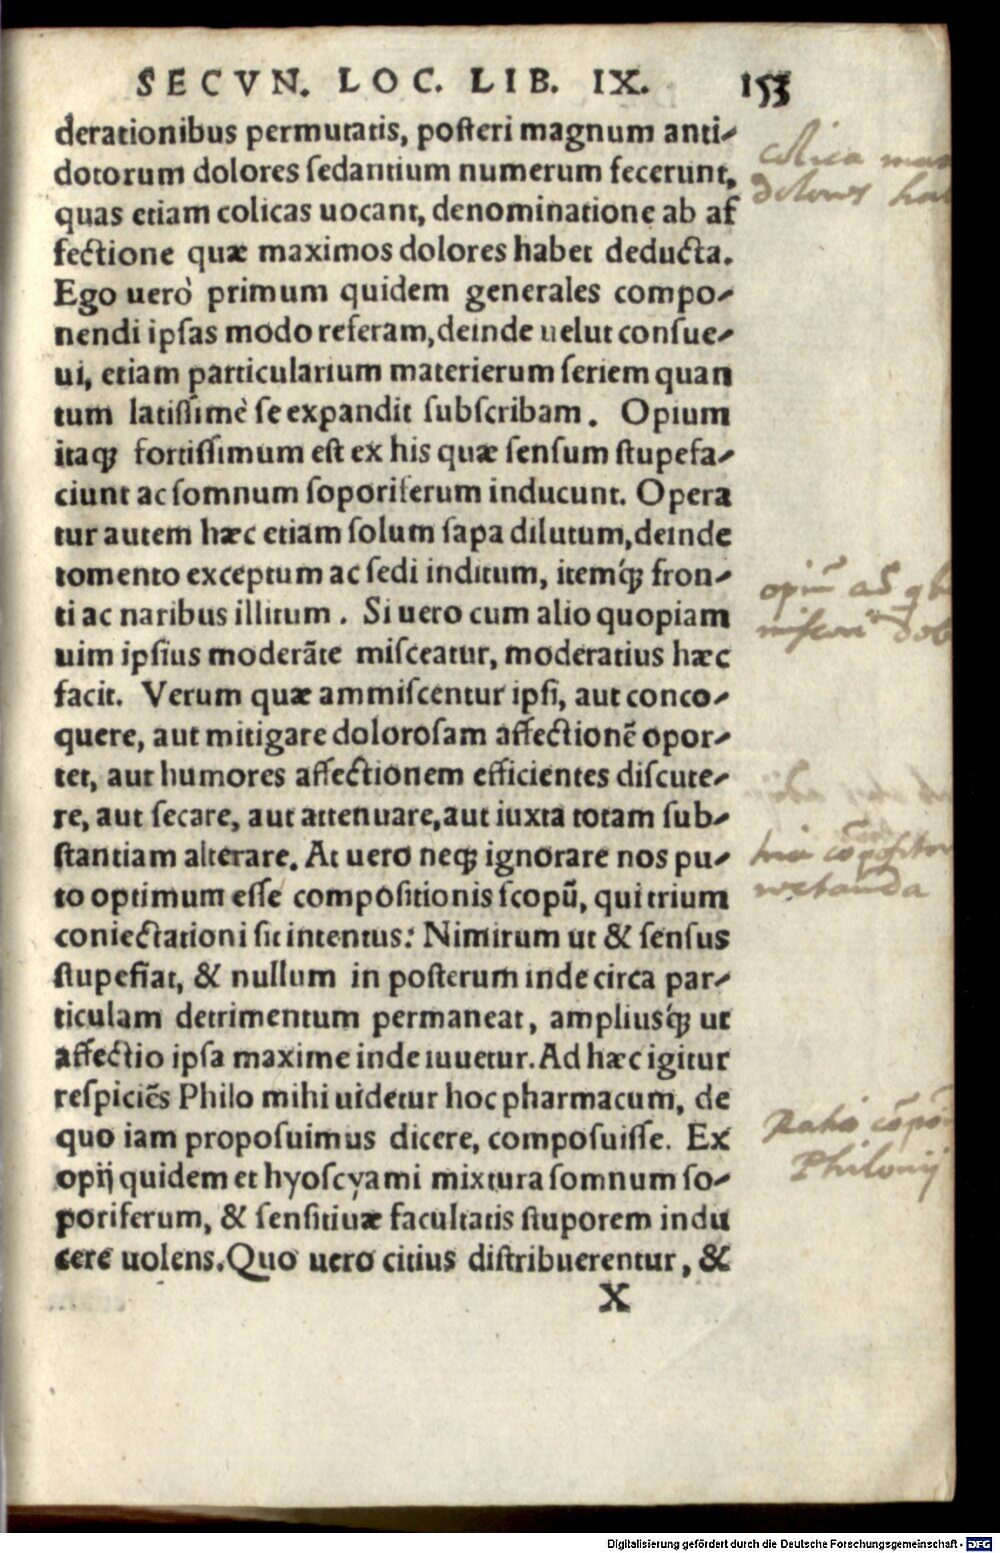 SECVN. LOC. LIB. IX. 153
derationibus permutatis, posteri magnum anti-
dotorum dolores sedantium numerum fecerunt,
quas etiam colicas uocant, denominatione ab af
fectione quæ maximos dolores habet deducta.
Ego uerò primum quidem generales compo-
nendi ipsas modo referam, deinde uelut consue-
ui, etiam particularium materierum seriem quan
tum latissimè se expandit subscribam. Opium
itaq; fortissimum est ex his quæ sensum stupefa-
ciunt ac somnum soporiferum inducunt. Opera
tur autem hæc etiam solum sapa dilutum, deinde
tomento exceptum ac sedi inditum, itemq́; fron-
ti ac naribus illitum. Si uero cum alio quopiam
uim ipsius moderãte misceatur, moderatius hæc
facit. Verum quæ ammiscentur ipsi, aut conco-
quere, aut mitigare dolorosam affectionẽ opor-
tet, aut humores affectionem efficientes discute-
re, aut secare, aut attenuare, aut iuxta totam sub-
stantiam alterare. At uero neq; ignorare nos pu-
to optimum esse compositionis scopũ, qui trium
coniectationi sit intentus: Nimirum ut & sensus
stupefiat, & nullum in posterum inde circa par-
ticulam detrimentum permaneat, ampliusq́; ut
affectio ipsa maxime inde iuuetur. Ad hæc igitur
respiciẽs Philo mihi uidetur hoc pharmacum, de
quo iam proposuimus dicere, composuisse. Ex
opij quidem et hyoscyami mixtura somnum so-
poriferum, & sensitiuæ facultatis stuporem indu
cere uolens. Quo uero citius distribuerentur, &
X
colica
dolores
Ratio
Philonij
Digitalisierung gefördert durch die Deutsche Forschungsgemeinschaft - DFG